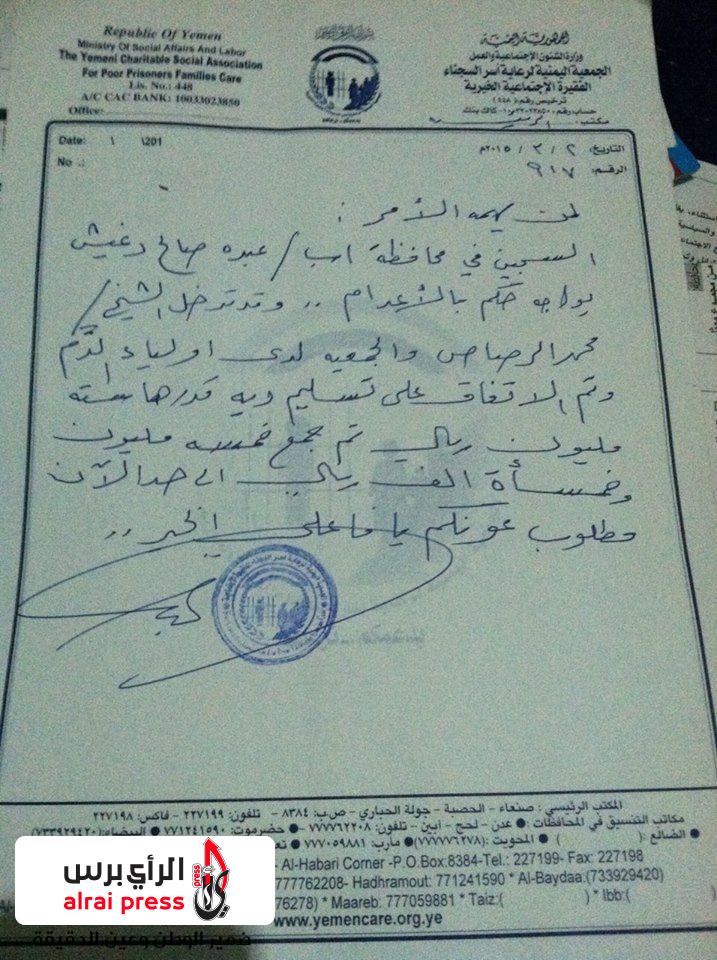 Republic Of Yemen
Ministry Of Social Affairs And Labor
The Yemeni Charitable Social Association
For Poor Prisoners Families Care
Lis. No.: 448
A/C CAC BANK: 10033023850
Office:
الجمهورية اليمنية
وزارة الشئون الإجتماعية والعمل
الجمعية اليمنية لرعاية أسر السجناء
الفقيرة الإجتماعية الخيرية
ترخيص رقم: (٤٤٨)
مكتب:
Date: \ \201
No .:
التاريخ: ٢ / ٣ / ٢٠١٥م
الرقم: ٩١٧
لمن يهمه الأمر :
السجين في محافظة اب / عبده صالح دغيش
يواجه حكم بالأعدام .. وقد تدخل الشيخ /
محمد الرصاص والجمعيه لدى اولياء الدم
وتم الاتفاق على تسليم ديه قدرها سته
مليون ريال تم جمع خمسه مليون
وخمسمأة الف ريال الى حد الآن
مطلوب عونكم يا فاعلي الخير ..
المكتب الرئيسي: صنعاء - الحصبة - جولة الحباري - ص.ب: ٨٣٨٤ - تلفون: ٢٢٧١٩٩ - فاكس: ٢٢٧١٩٨
مكاتب التنسيق في المحافظات: ● عدن - لحج - أبين - تلفون: ٧٧٧٧٦٢٢٠٨ ● حضرموت: ٧٧١٢٤١٥٩٠ ● البيضاء: (٧٣٣٩٢٩٤٢٠)
● الضالع: ( ) ● المحويت: (٧٧٧٧٧٦٢٧٨) ● مأرب: ٧٧٧٠٥٩٨٨١
- Al-Habari Corner -P.O.Box:8384-Tel.: 227199- Fax: 227198
777762208- Hadhramout: 771241590 * Al-Baydaa:(733929420)
76278) * Maareb: 777059881 * Taiz:( ) * Ibb:(
www.yemencare.org.ye
الرأي برس
alrai press
press
ضمير الوطن وعين الحقيقة